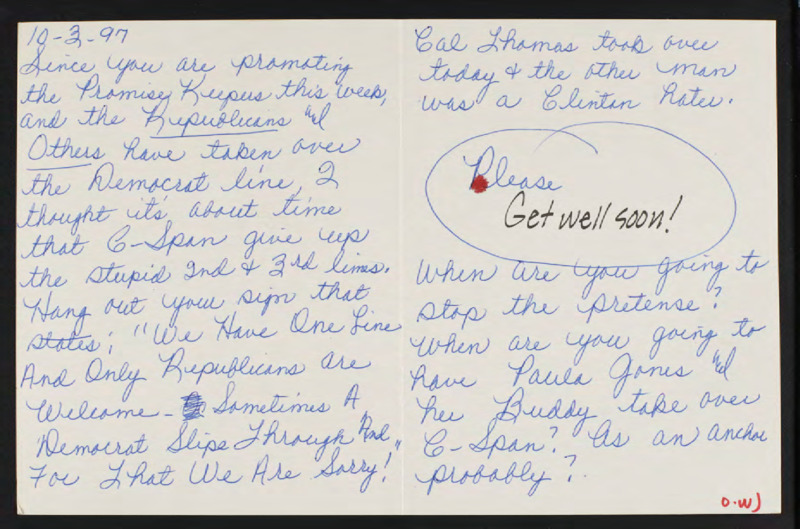 10-3-97
Since you are promoting
the Promise Keepers this week,
and the Republicans &
Others have taken over
the Democrat line, I
thought it's about time
that C-Span give up
the stupid 2nd & 3rd lines.
Hang out your sign that
states; "We Have One Line
And Only Republicans are
Welcome- Sometimes A
Democrat Slips Through And
For That We Are Sorry!"
Cal Thomas took over
today & the other man
was a Clinton Hater.
Please
Get well soon!
When are you going to
stop the pretense?
When are you going to
have Paula Jones &
her Buddy take over
C-Span? As an anchor
probably?
O.WJ